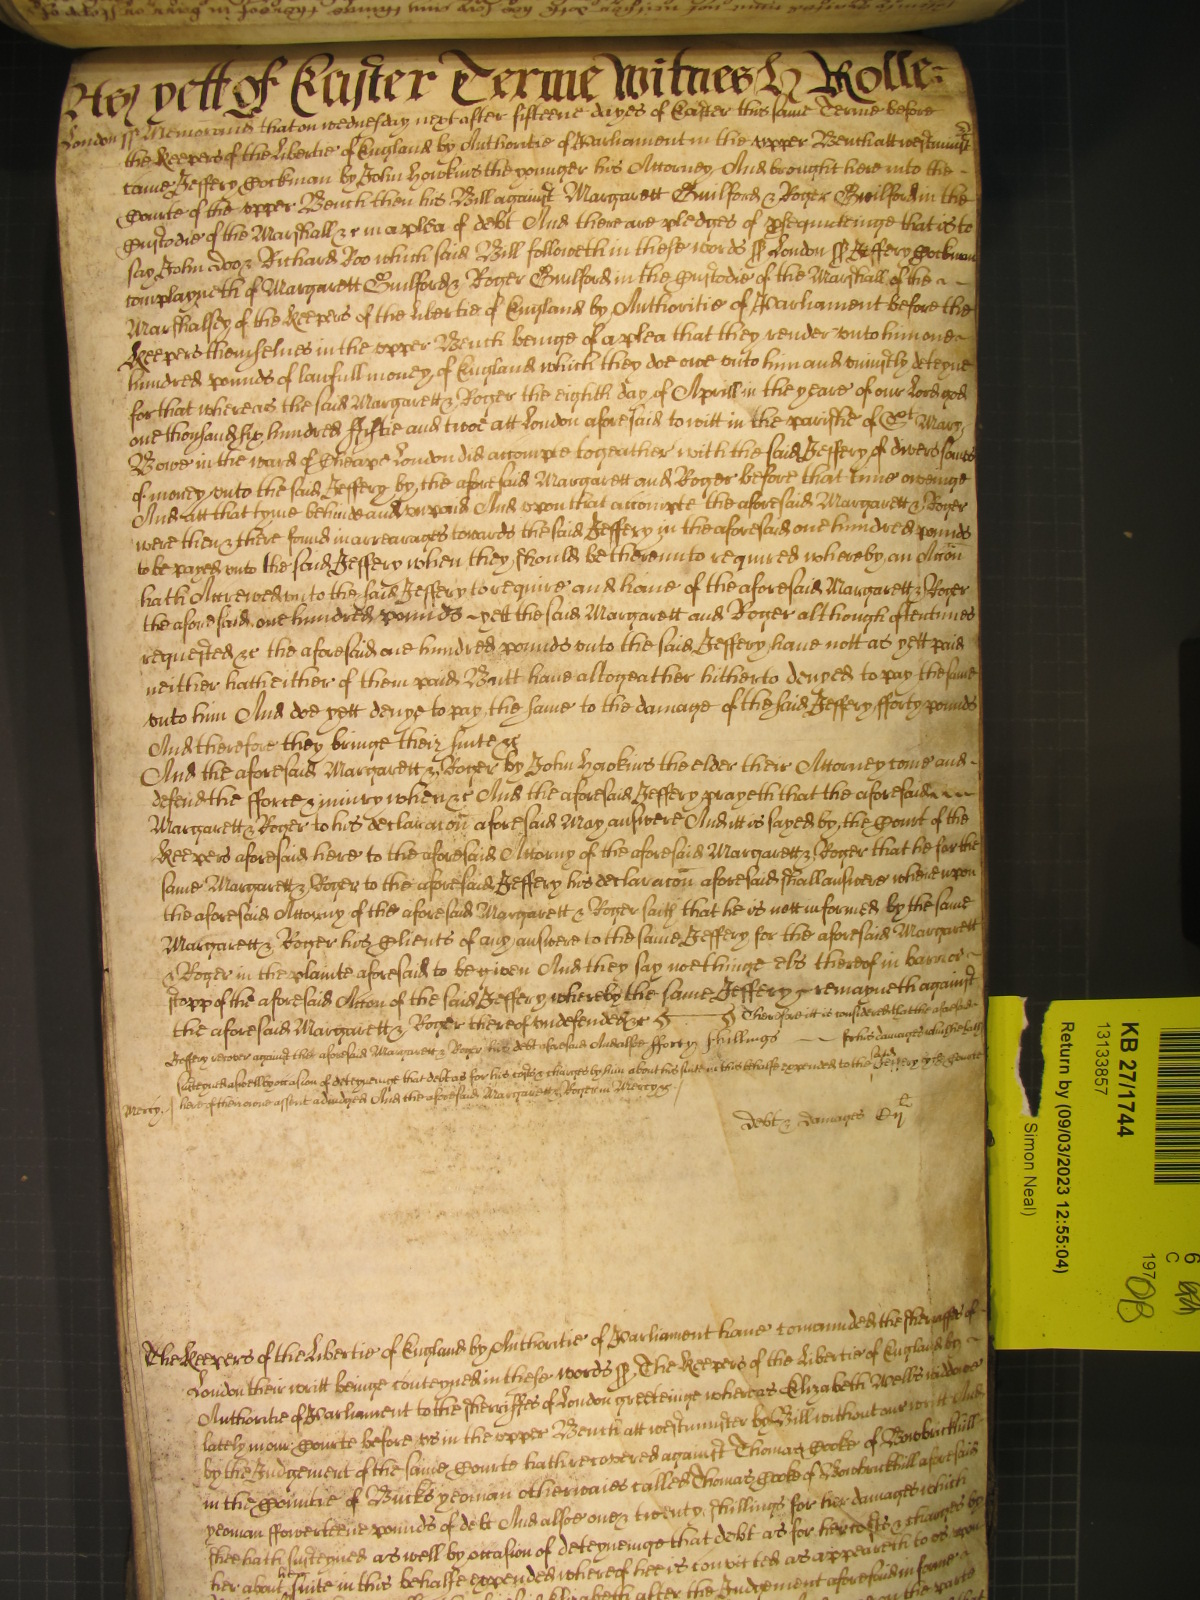 As yett of Easter Terme Witnes H Rolle
London ss Memorand that on wednesday next after fifteene dayes of Easter this same Terme before
the Keepers of the Libertie of England by Authoritie of Parliament in the upper Bench att westminster
came Jeffery Cockman by John Howkins the younger his Attorney And brought here into the
Courte of the upper Bench then his Bill against Margarett Guilford & Roger Guilford in the
Custodie of the Marshall &c in a plea of debt And there are pledges of prsequuteinge that is to
say John Doo & Richard Roo which said Bill followeth in these words ss London ss Jeffery Cockman
complayneth of Margarett Guilford & Roger Guilford in the Custodie of the Marshall of the
Marshalsey of the Keepers of the libertie of England by Authoritie of Parliament before the
Keepers themselves in the upper Bench beinge of a plea that they render unto him one
hundred pounds of lawfull money of England which they doe owe unto him and uniustly deteyne
for that whereas the said Margarett & Roger the eighth day of Aprill in the yeare of our Lord god
one thousand six hundred ffiftie and twoe att London aforesaid to witt in the parishe of St Mary
Bowe in the ward of Cheape London did accompte togeather with the said Jeffery of divers somes
of money unto the said Jeffery by the aforesaid Margarett and Roger before that time oweinge
And att that tyme behinde and unpaid And upon that accompte the aforesaid Margarett & Roger
were then & there found in arrearages towards the said Jeffery in the aforesaid one hundred pounds
to be payed unto the said Jeffery when they should be thereunto required whereby an Accon
hath Accrewed unto the said Jeffery to require and have of the aforesaid Margarett & Roger
the aforesaid one hundred pounds yett the said Margarett and Roger although oftentimes
requested &c the aforesaid one hundred pounds unto the said Jeffery have nott as yett paid
neither hath either of them paid Butt have altogeather hitherto denyed to pay the same
unto him And doe yett denye to pay the same to the damage of the said Jeffery fforty pounds
And therefore they bringe their suite &c
And the aforesaid Margarett & Roger by John Howkins the elder their Attorney come and
defend the fforce & iniury when &c And the aforesaid Jeffery prayeth that the aforesaid
Margarett & Roger to his declaracon aforesaid May answere And itt is sayed by the Court of the
Keepers aforesaid here to the aforesaid Attorny of the aforesaid Margarett & Roger that he for the
same Margarett & Roger to the aforesaid Jeffery his declaracon aforesaid shall answere whereupon
the aforesaid Attorny of the aforesaid Margarett & Roger saith that he is nott informed by the same
Margarett & Roger his Clients of any answere to the same Jeffery for the aforesaid Margarett
& Roger in the plainte aforesaid to be given And they say noethinge els thereof in barr or
stopp of the aforesaid Accon of the said Jeffery whereby the same Jeffery remayneth against
the aforesaid Margarett & Roger thereof undefended &c Therefore itt is considered that the aforesaid
Jeffery recover against the aforesaid Margarett & Roger his debt aforesaid And alsoe fforty shillings for his damages which he hath
susteyned aswell by occasion of deteyneinge that debt as for his costs & charges by him about his suite in this behalfe expended to the said Jeffery by the Courte
Mercy. here of their owne assent adiudged And the aforesaid Margarett & Roger in Mercy &c
Debt & damages Cij l
The Keepers of the Libertie of England by Authoritie of Parliament have comaunded the sherriffes of
London their writt beinge conteyned in these words ss The Keepers of the Libertie of England by
Authoritie of Parliament to the sherriffes of London greeteinge whereas Elizabeth Wells widdowe
lately in our Courte before us in the upper Bench att westminster by Bill without our writt And
by the Judgement of the same Courte hath recovered against Thomas Cooke of Bowbrickhill
in the Countie of Bucks yeoman otherwaies called Thomas Cooke of Bowbrickhill aforesaid
yeoman ffowerteene pounds of debt And alsoe one & twenty shillings for her damages which
shee hath susteyned as well by occasion of deteyneinge that debt as for her costs & charges by
her about her suite in this behalfe expended whereof hee is convicted as appeareth to us upon
Elizabeth after the Judgement aforesaid in forme
on the parte
KB 27/1744
13133857
Return by (09/03/2023 12:55:04)
Simon Neal)
6
C
197